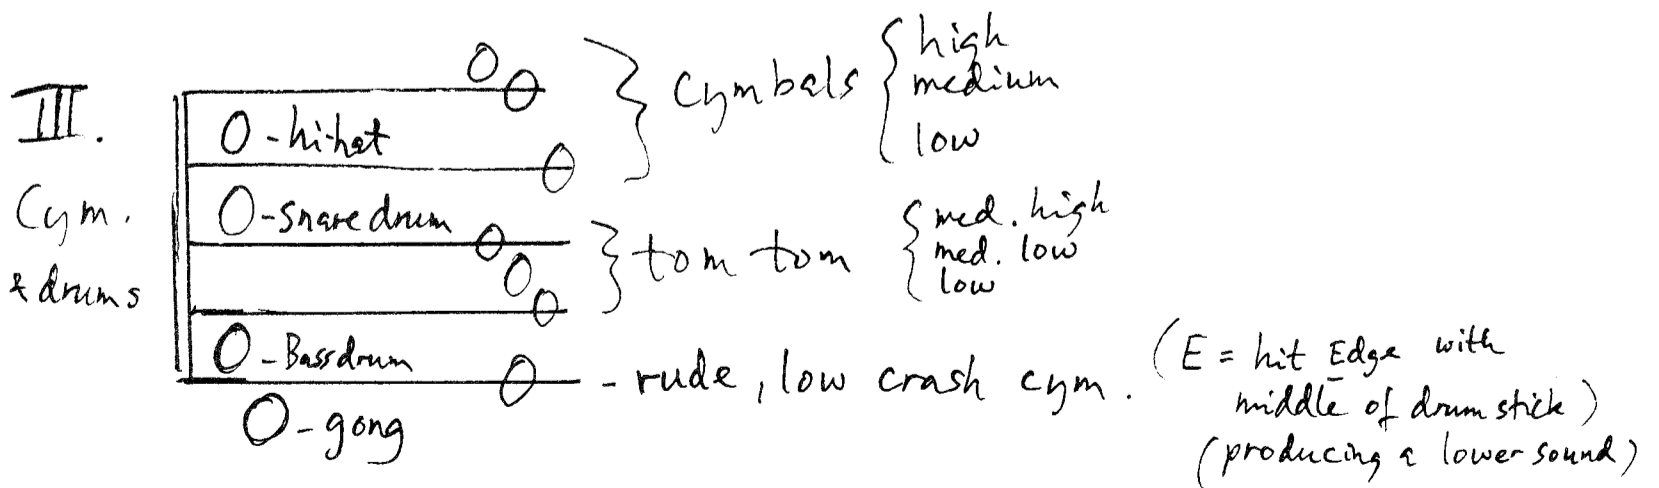 III.
Cym.
& drums
O - hi-hat
O - Snare drum
O - Bass drum
O - gong
} Cymbals { high
medium
low
} tom tom { med. high
med. low
low
- rude, low crash cym. (E = hit Edge with
middle of drum stick)
(producing a lower sound)